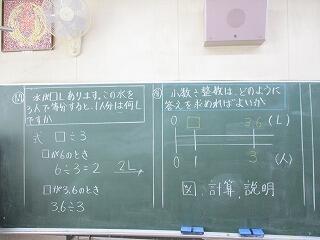 問
水が□Lあります。この水を
3人で等分すると、1人分は何L
ですか
式 □÷3
□が6のとき
6÷3=2 2L
□が3.6のとき
3.6÷3
小数÷整数は、どのように
答えを求めればよいか
0 □ 3.6 (L)
0 1 3 (人)
図、計算、説明